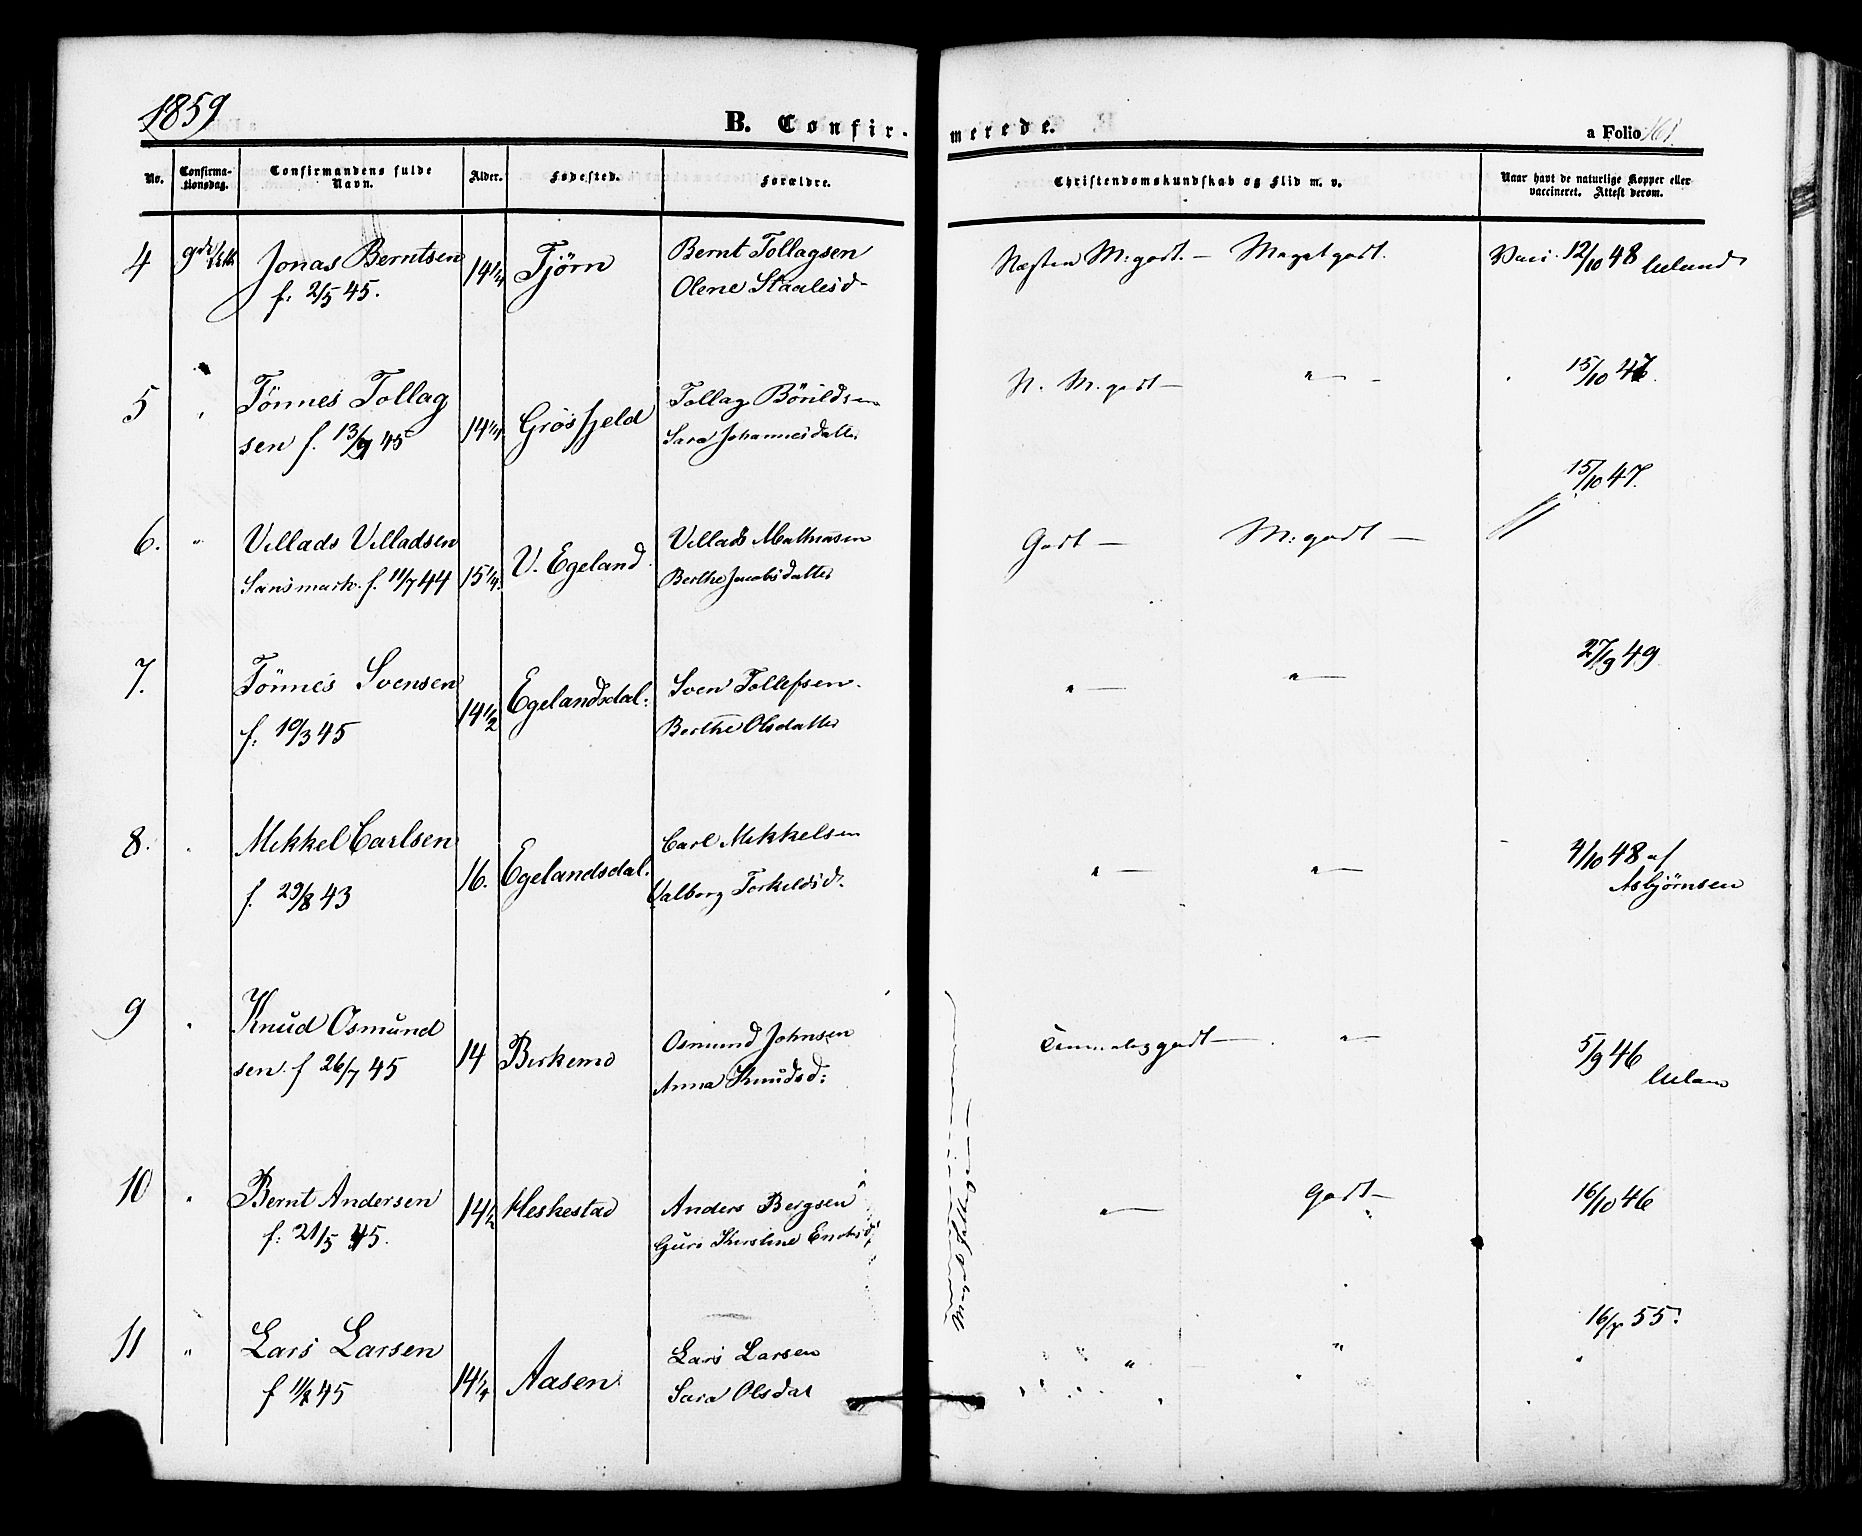 1859
B. Confirmerede.
a Folio 161.
No.
Confirmationsdag.
Confirmandens fulde Navn.
Alder.
Fødested.
Forældre.
Christendomskundskab og Flid m. v.
Naar havt de naturlige Kopper eller vaccineret. Attest derom.
4 Jonas Berntsen 14 1/4 Tjörn Bernt Tollagsen Næsten M. godt. — Meget godt. Vacc. 12/10 48 Ueland
f. 2/5 45. Olene Staalesd
5 " Tönnes Tollag 14 1/4 Grösfjeld Tollag Börildsen N. M. godt — " — 15/10 47.
sen f. 13/9 45 Sara Johannesdatter
15/10 47.
6. " Villads Villadsen V. Egeland Villads Mathiasen Godt — M: godt —
Sansmark. f. 11/7 44 15 1/4. Berthe Jacobsdatter
7. Tönnes Svensen 14 1/2 Egelandsdal. Sven Tollefsen. " — " — 27/9 49
f. 10/3 45 Berthe Olsdatter
8. " Mikkel Carlsen 16. Egelandsdal. Carl Mikkelsen " — " — 4/10 48 af
f. 29/8 43 Valborg Torkelsd. Asbjørnsen
9 " Knud Osmund 14 Birkemo Osmund Johnsen Temmelig godt — " — 5/9 46
sen. f 26/7 45 Anna Knudsd: Ueland
10 " Bernt Andersen 14 1/2 Heskestad Anders Bergsen " — Godt — 16/10 46
f: 21/5 45. Guri Kirstine
11 " Lars Larsen 14 1/4 Aasen Lars Larsen " " 16/7 55.
f 11/7 45 Sara Olsdat